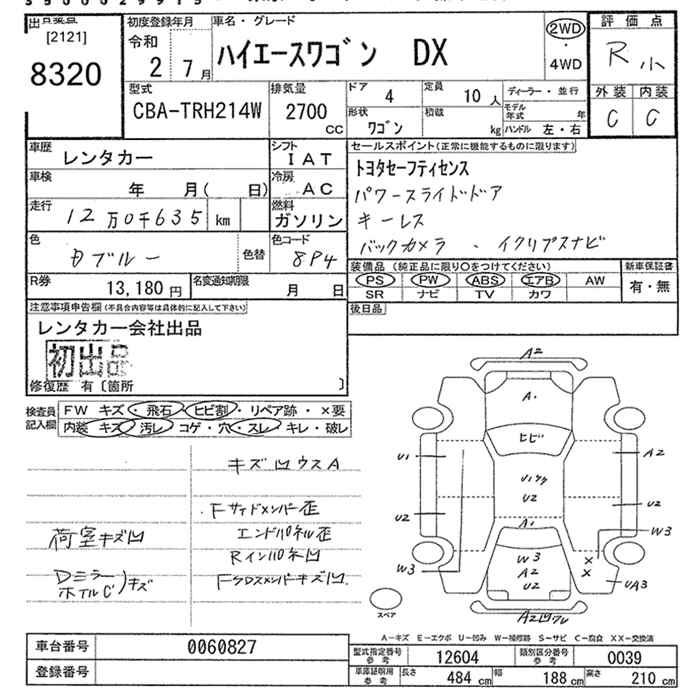 出品票点
[2121]
8320
初度登録年月
令和
2 7月
車名・グレード
ハイエースワゴン DX
2WD
・
4WD
評価点
R小
外装 内装
C C
型式
CBA-TRH214W
排気量
2700
cc
ドア 4
形状
ワゴン
定員 10 人
積載 kg
ディーラー・並行
モデル年式 年
ハンドル 左・右
車歴 レンタカー
車検 年 月( 日)
走行 12万0千635 km
色 Dブルー 色替
シフト IAT
冷房 AC
燃料 ガソリン
色コード 8P4
R券 13,180円
名変通知期限 月 日
セールスポイント(正常に機能するものに限ります)
トヨタセーフティセンス
パワースライドドア
キーレス
バックカメラ 、イクリプスナビ
装備品(純正品に限り○をつけてください) 新車保証書
PS PW ABS エアB AW 有・無
SR ナビ TV カワ
後日品
注意事項申告欄(不具合内容等は具体的に記入して下さい)
レンタカー会社出品
初出品
修復歴 有〔箇所 〕
検査員記入欄
FW キズ・飛石・ヒビ割・リペア跡・×要
内装 キズ・汚レ・コゲ・穴・スレ・キレ・破レ
キズ凹ウスA
Fサイドメンバー歪
荷室キズ凹 エンドパネル歪
Rインパネ凹
Dミラー
ホイルC)キズ
Fクロスメンバーキズ凹
A2
A・
ヒビ
U1 A2
U1ウケ
U2
U2 U2
A1
W3
W3
W3
A2
U2
×
×
UA3
A2凹ワレ
スペア
A-キズ E-エクボ U-凹み W-補修跡 S-サビ C-腐食 XX-交換済
車台番号 0060827
登録番号
型式指定番号参考 12604 類別区分番号参考 0039
車庫証明用参考 長さ 484cm 幅 188cm 高さ 210cm